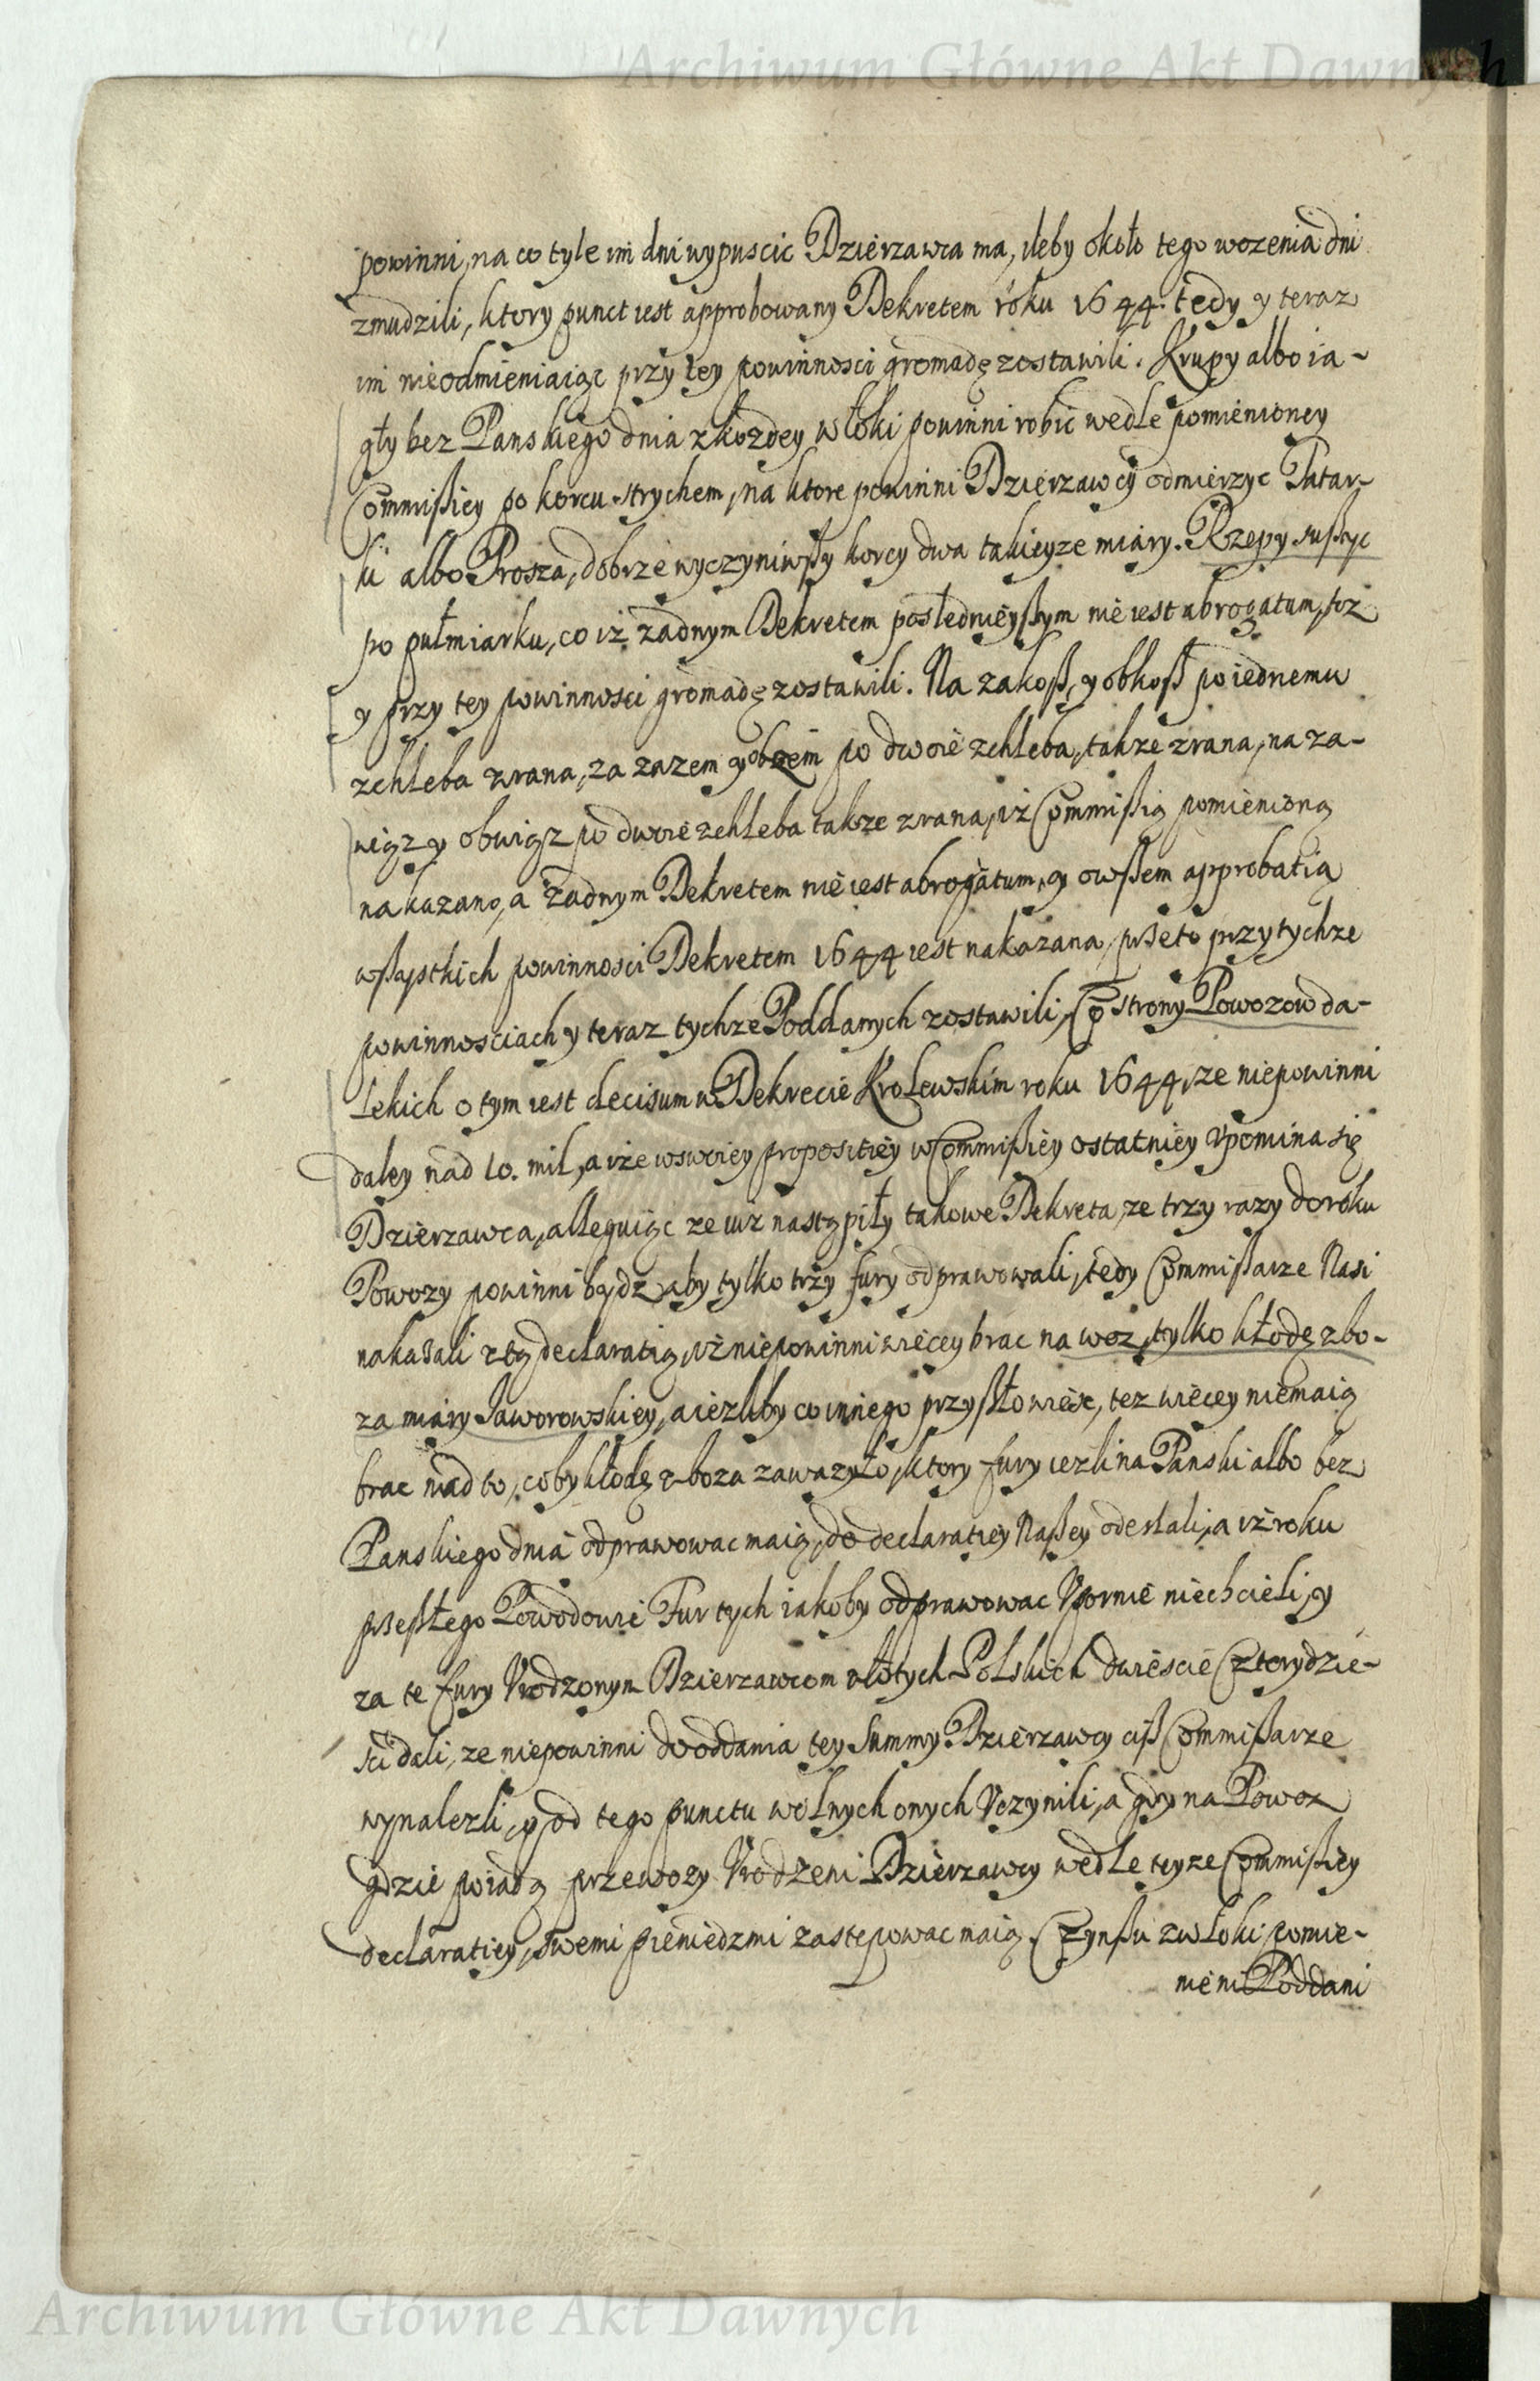 Archiwum Główne Akt Dawnych
powinni, na co tyle im dni wypuscic Dzierzawca ma, ileby około tego wozenia dni
zmudzili, ktory punct iest approbowany Dekretem roku 1644. tedy y teraz
im nieodmieniaiąc przy tey powinnosci gromadę zostawili. Krupy albo ia-
gły bez Panskiego dnia z kozdey włoki powinni robic wedle pomienioney
Commißiey po korcu strychem, na ktore powinni Dzierzawcy odmierzyc Tatar-
ki albo Prosza, dobrze wyczyniwßy korcy dwa takieyze miary. Rzepy sußyc
po pułmiarku, co iż zadnym Dekretem poslednieyßym nie iest abrogatum, toż
y przy tey powinnosci gromadę zostawili. Na zakoß, y obkoß po iednemu
zchleba zrana, za zazem y obzem po dwoie zchleba, takze zrana, na za-
wiąz y obwiąz po dwoie zchleba takze zrana, iż Commißią pomienioną
nakazano, a żadnym Dekretem nie iest abrogatum, y owßem approbatią
wßystkich powinnosci Dekretem 1644 iest nakazana, przeto przy tychze
powinnosciach y teraz tychze Poddanych zostawili, Co strony Powozow da-
lekich o tym iest decisum w Dekrecie Krolewskim roku 1644, ze niepowinni
daley nad 10. mil, a iże w swoiey propositiey w Commißiey ostatniey Vpomina się
Dzierzawca, alleguiąc ze iuż nastąpiły takowe Dekreta, ze trzy razy do roku
Powozy powinni bydz aby tylko trzy fury odprawowali, tedy Commißarze Nasi
nakazali z tą declaratią, iż niepowinni więcey brac na woz, tylko kłodę zbo-
za miary Jaworowskiey, a ieżliby co innego przyßło wieźc, tez więcey niemaią
brac nad to, coby kłodę zboza zawazyło, ktory fury iezli na Panski albo bez
Panskiego dnia odprawowac maią, do declaratiey Naßey odeslali, a iż roku
przeßłego Powodowie Fur tych iakoby odprawowac Vpornie niechcieli, y
za te fury Vrodzonym Dzierzawcom złotych Polskich dwiescie Czterydzie-
sci dali, ze niepowinni do oddania tey Summy Dzierzawcy ciß Commißarze
wynalezli, y od tego punctu wolnych onych Vczynili, a gdy na Powoz
gdzie poiadą przewozy Vrodzeni Dzierzawcy wedle teyze Commißiey
declaratiey, swemi pieniędzmi zastępowac maią. Czynßu z włoki pomie-
nieni Poddani
Archiwum Główne Akt Dawnych